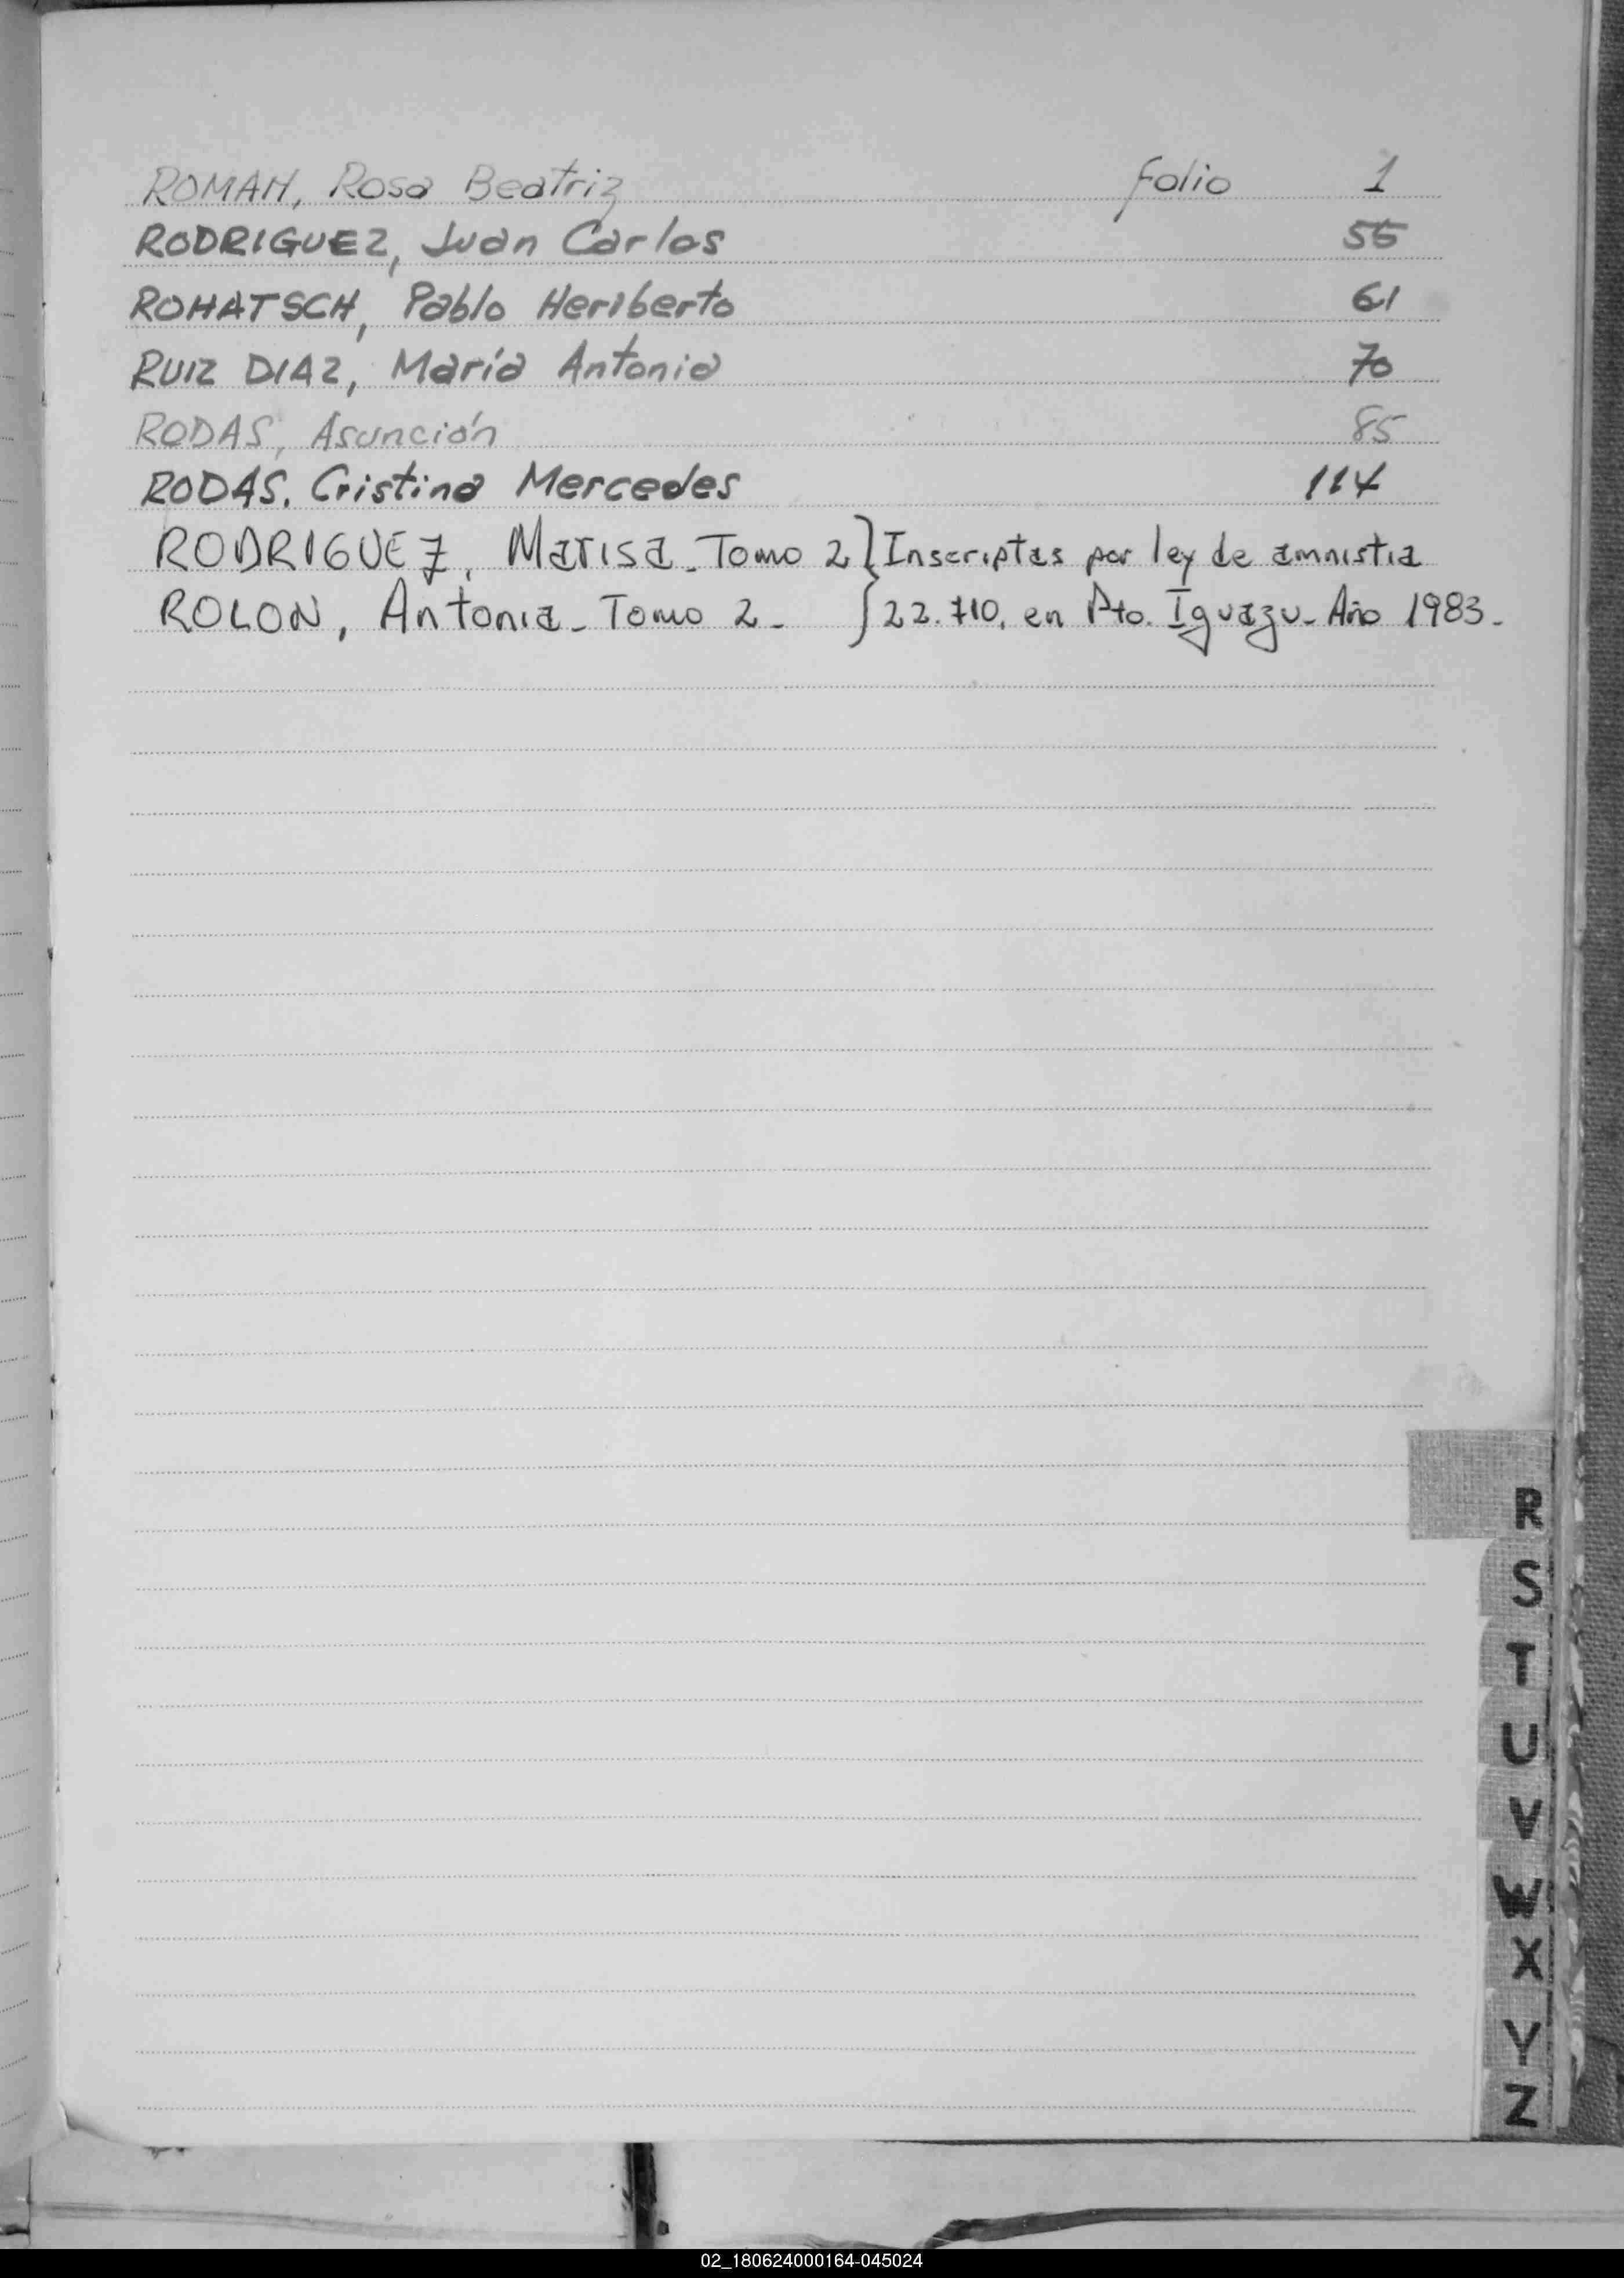 ROMAN, Rosa Beatriz folio 1
RODRIGUEZ, Juan Carlos 55
ROHATSCH, Pablo Heriberto 61
RUIZ DIAZ, María Antonia 70
RODAS, Asunción 85
RODAS, Cristina Mercedes 114
RODRIGUEZ, Marisa - Tomo 2 } Inscriptas por ley de amnistia
ROLON, Antonia - Tomo 2 - } 22.710, en Pto. Iguazu - Año 1983 -
R
S
T
U
V
W
X
Y
Z
02_180624000164-045024